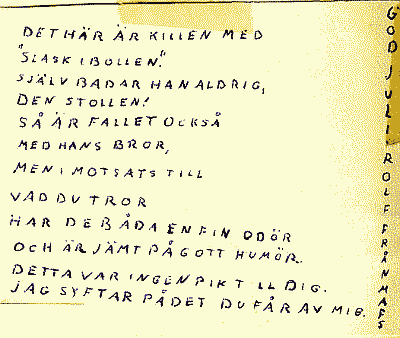 DET HÄR ÄR KILLEN MED
"SLASK I BOLLEN."
SJÄLV BADAR HAN ALDRIG,
DEN STOLLEN!
SÅ ÄR FALLET OCKSÅ
MED HANS BROR,
MEN I MOTSATS TILL
VAD DU TROR
HAR DE BÅDA EN FIN ODÖR
OCH ÄR JÄMT PÅ GOTT HUMÖR.
DETTA VAR INGEN PIK T LL DIG.
JAG SYFTAR PÅ DET DU FÅR AV MIG.
GOD JUL! ROLF FRÅN MATS